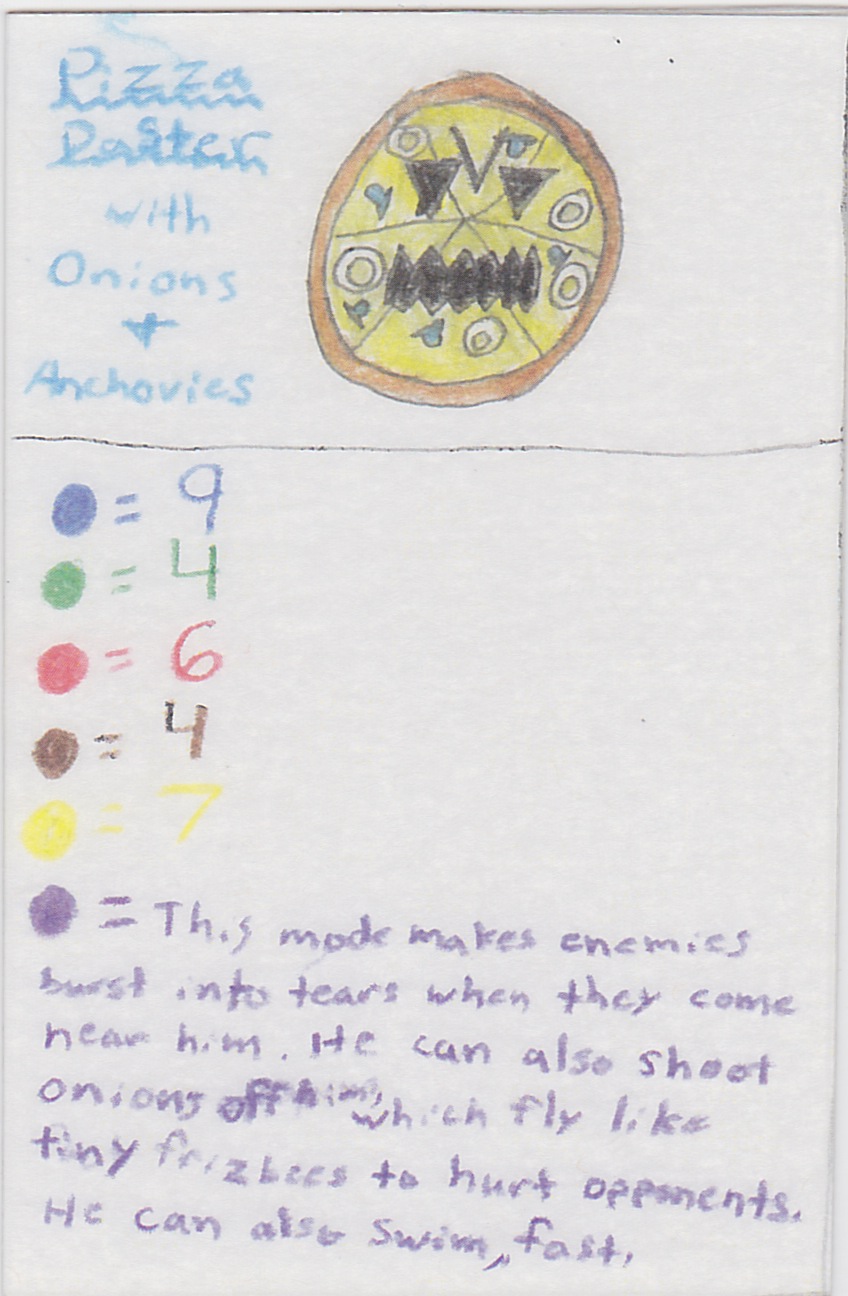 Pizza
with
Onions
+
Anchovies
= 9
= 4
= 6
= 4
= 7
= This mode makes enemies
burst into tears when they come
near him. He can also shoot
onions off him, which fly like
tiny frizbees to hurt opponents.
He can also swim, fast.